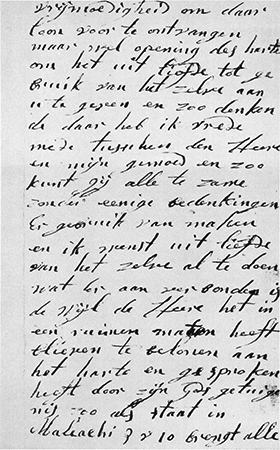 vrijmoedigheid om daar
loon voor te ontvangen
maar wel opening des harte
om het uit liefde tot ge
bruik van het zelve aan
u te geven en zoo denken
de daar heb ik vrede
mede tusschen den Heere
en mijn gemoed en zoo
kunt gij alle te zame
zonder eenige bedenkingen
Er gebruik van maken
en ik wenst uit liefde
van het zelve al te doen
wat er aan verbonden is
de wijl de Heere het in
een ruimen maten heeft
believen te betonen aan
het harte en gesproken
heeft door zijn Gds getuige
nis zoo als staat in
Maliachi 3 v 10 brengt alle